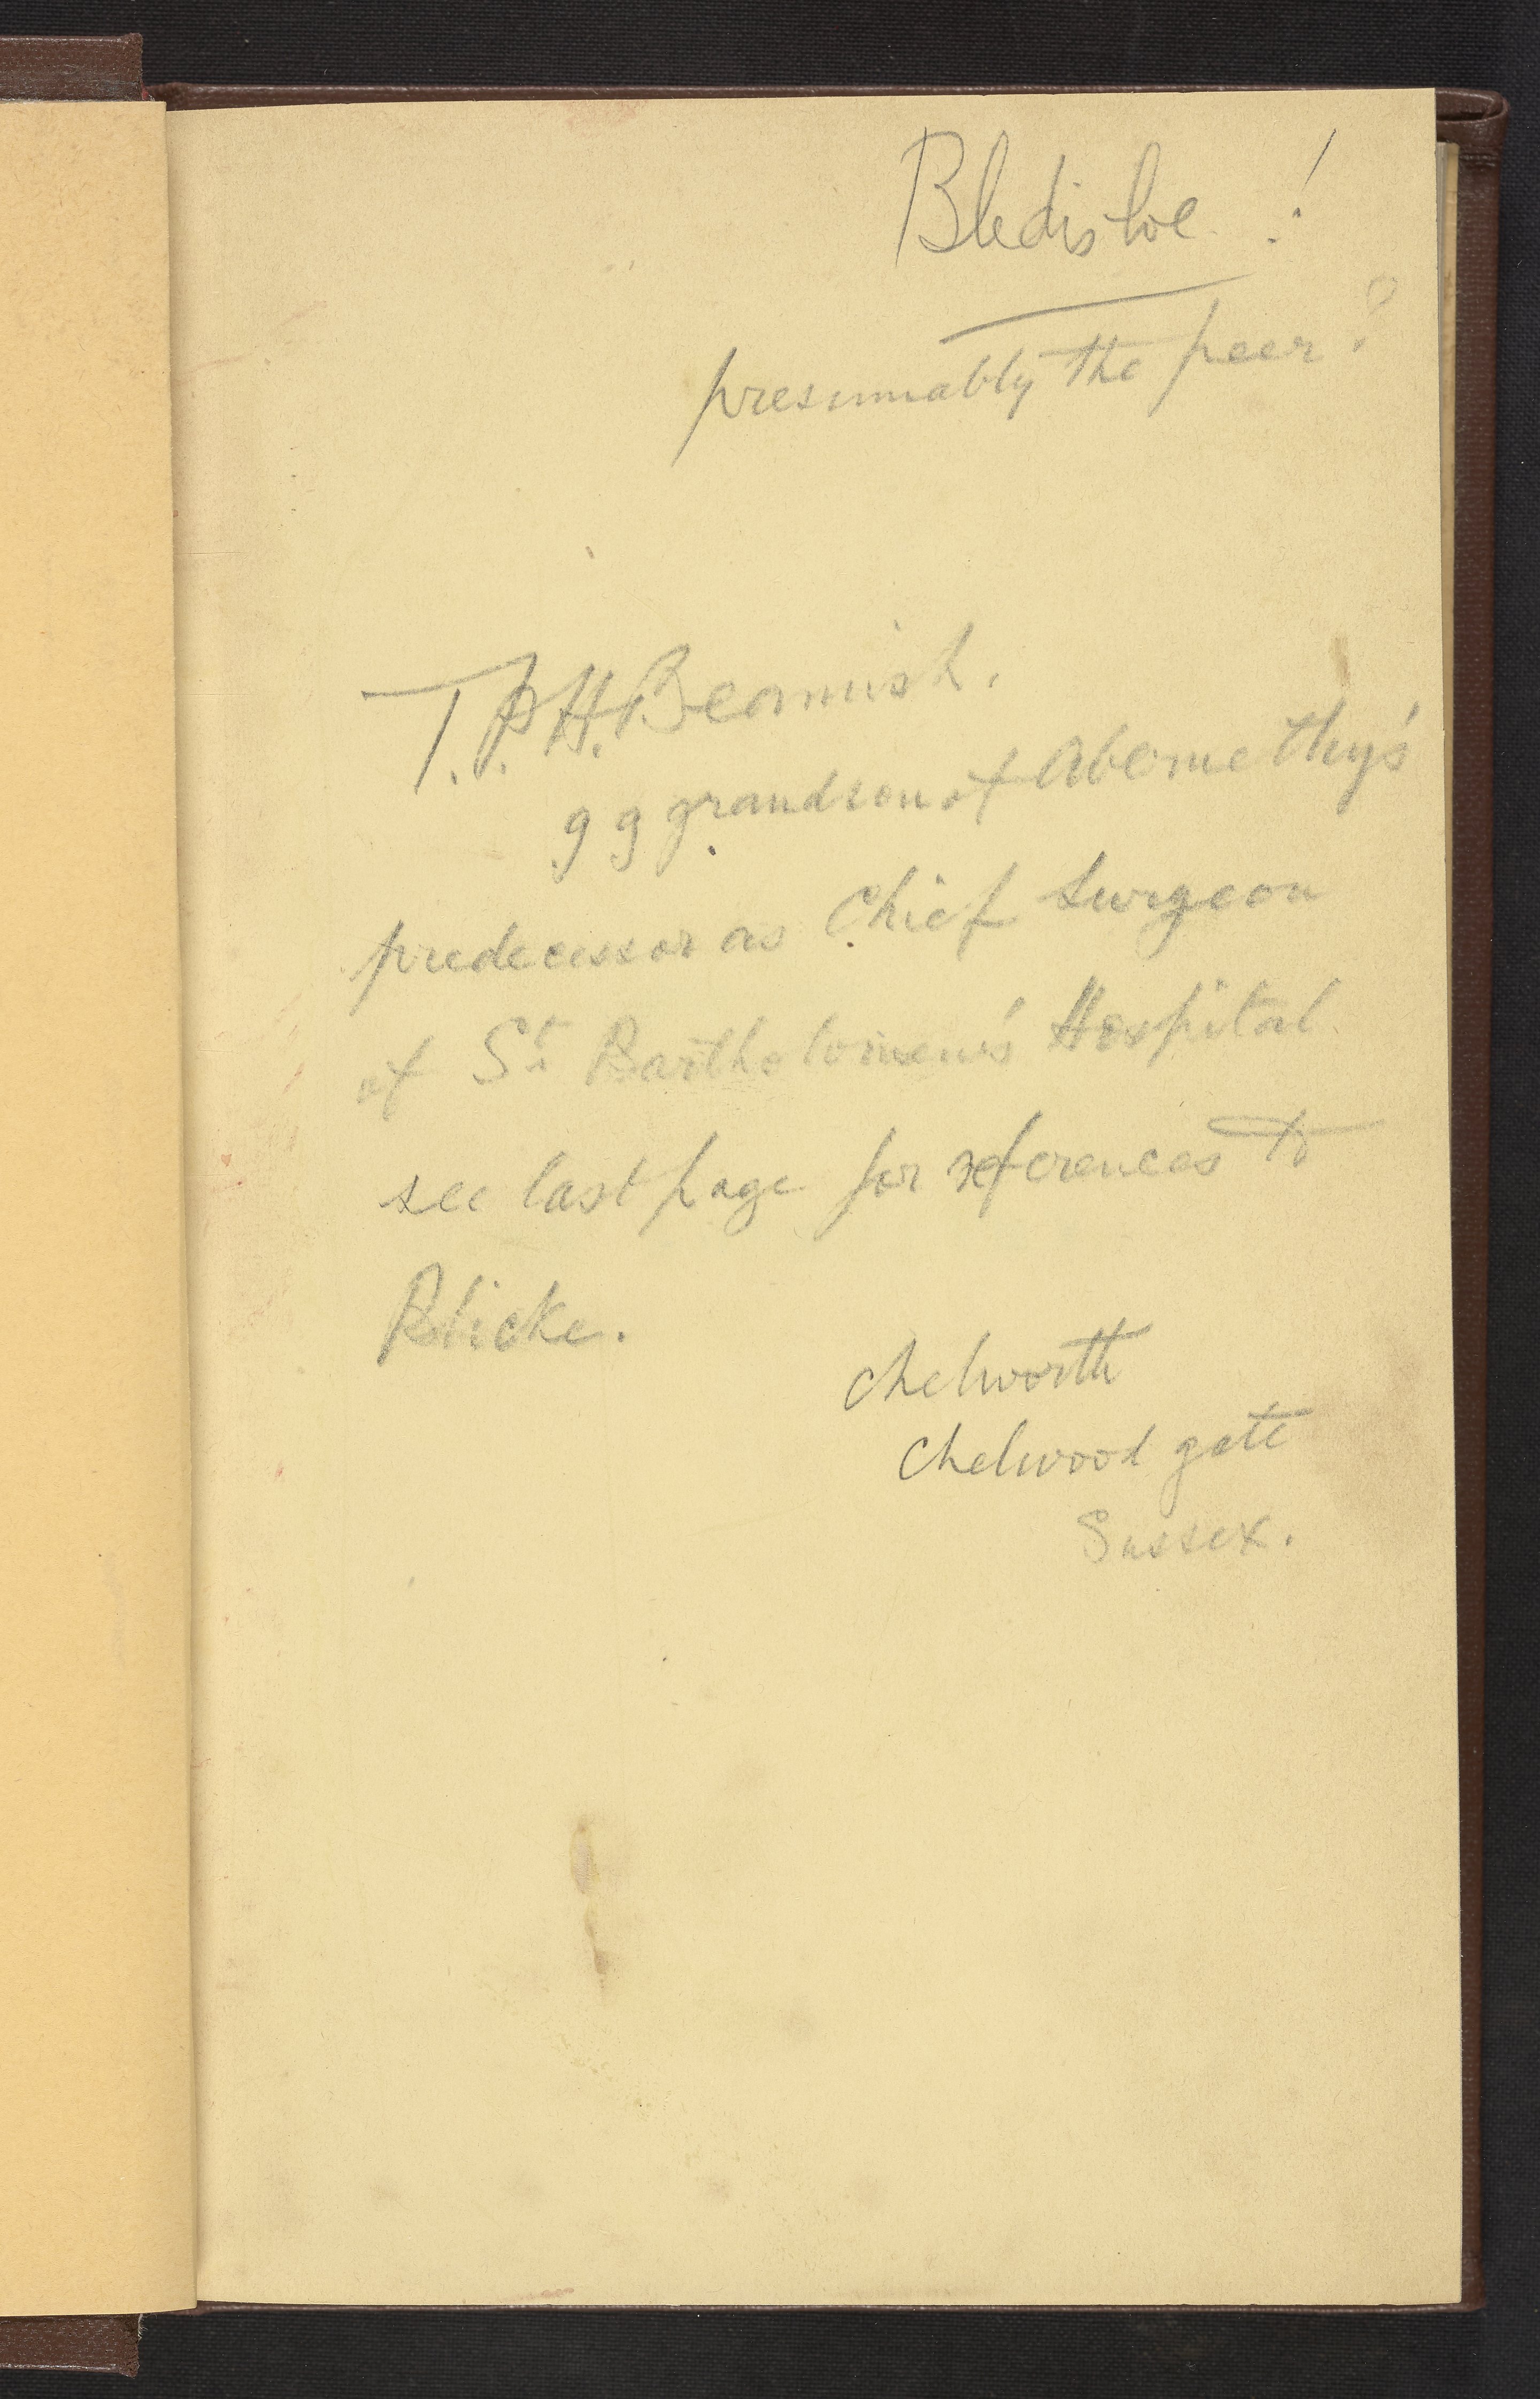 Bledisloe !
presumably the peer ?
T. P. H. Beamish.
g g grandson of Abernethy's
predecessor as Chief Surgeon
of St. Bartholomew's Hospital.
see last page for references to
Blicke.
Chelworth
Chelwood gate
Sussex.